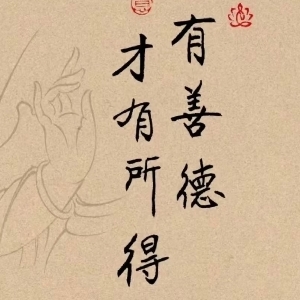 有善德
才有所得